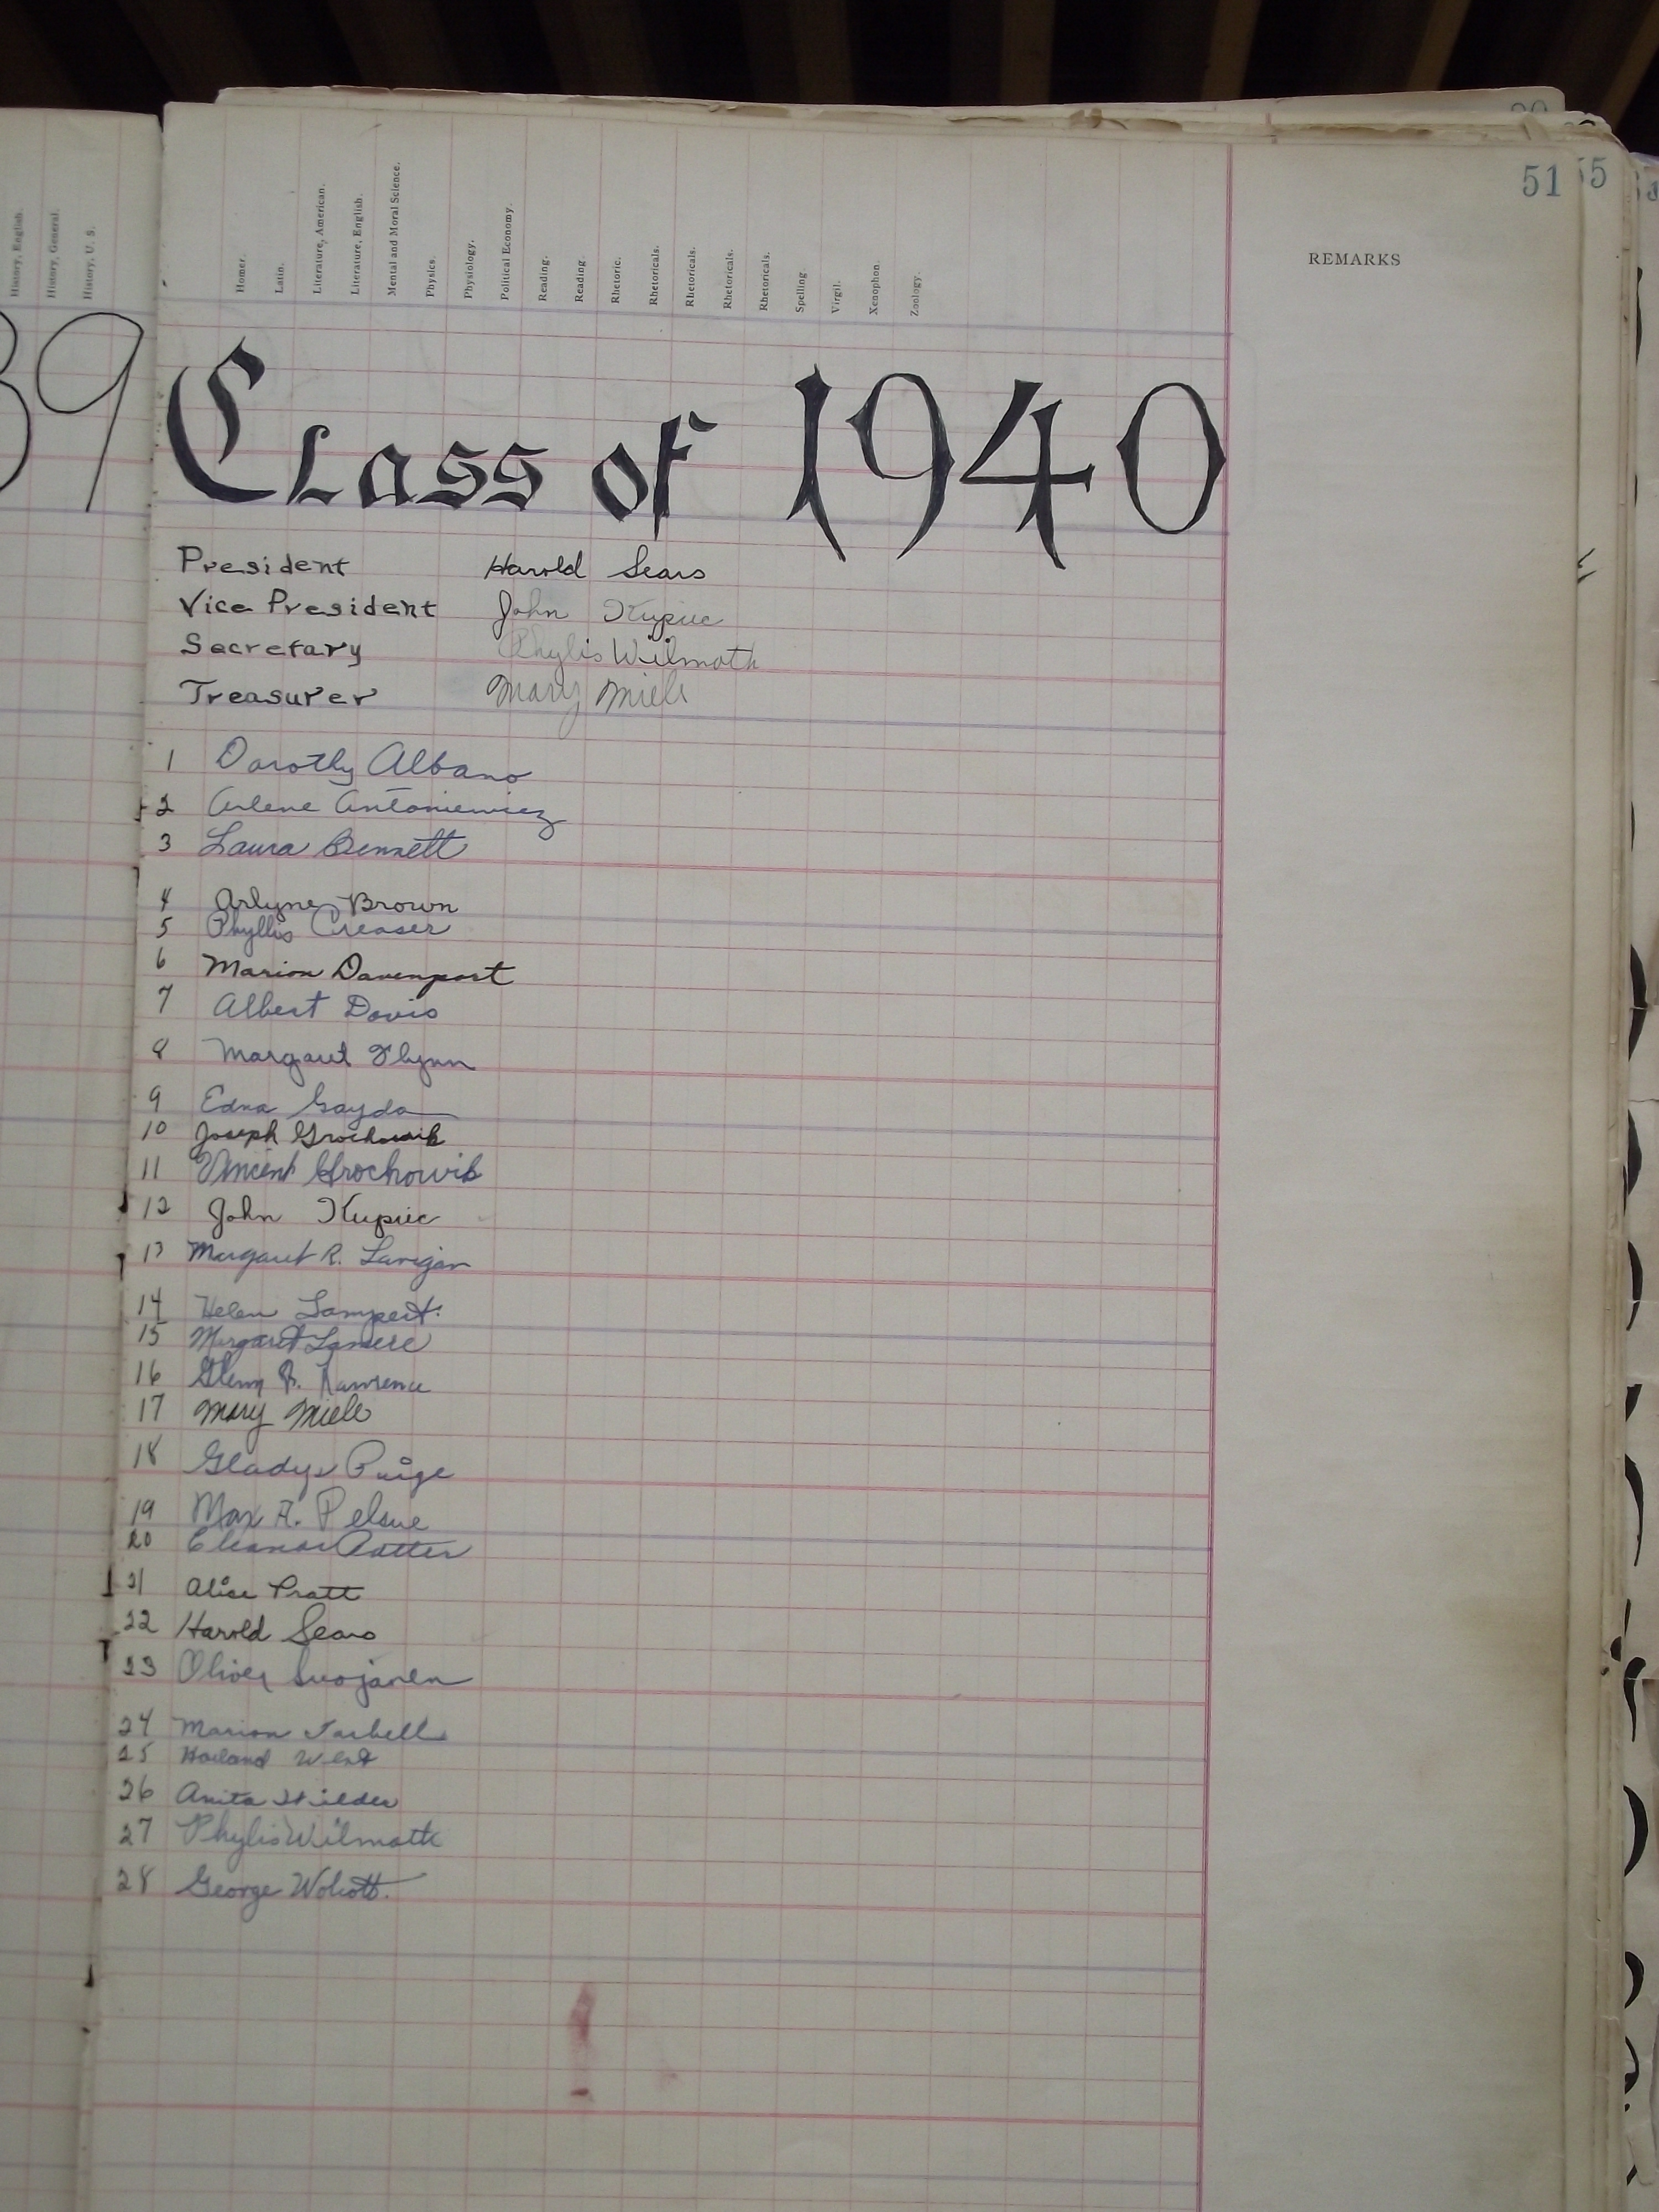 History, English.
History, General.
History, U. S.
Homer.
Latin.
Literature, American.
Literature, English.
Mental and Moral Science.
Physics.
Physiology.
Political Economy.
Reading.
Reading.
Rhetoric.
Rhetoricals.
Rhetoricals.
Rhetoricals.
Rhetoricals.
Spelling
Virgil.
Xenophon.
Zoology.
REMARKS
51
55
39
Class of 1940
President Harold Sears
Vice President John Kupiec
Secretary Phylis Wilmoth
Treasurer Mary Miele
1 Dorothy Albano
2 Arlene Antoniewicz
3 Laura Bennett
4 Arlyne Brown
5 Phyllis Creaser
6 Marion Davenport
7 Albert Davis
8 Margaret Flynn
9 Edna Gayda
10 Joseph Grochowik
11 Vincent Grochowik
12 John Kupiec
13 Margaret R. Lanigan
14 Helen Lampert.
15 Margaret Lamere
16 Glenn Lawrence
17 Mary Miele
18 Gladys Paige
19 Max A. Pelsue
20 Eleanor Potter
21 Alice Pratt
22 Harold Sears
23 Oliver Suojanen
24 Marion Tarbell
25 Harland West
26 Anita Wilder
27 Phylis Wilmoth
28 George Wolcott.